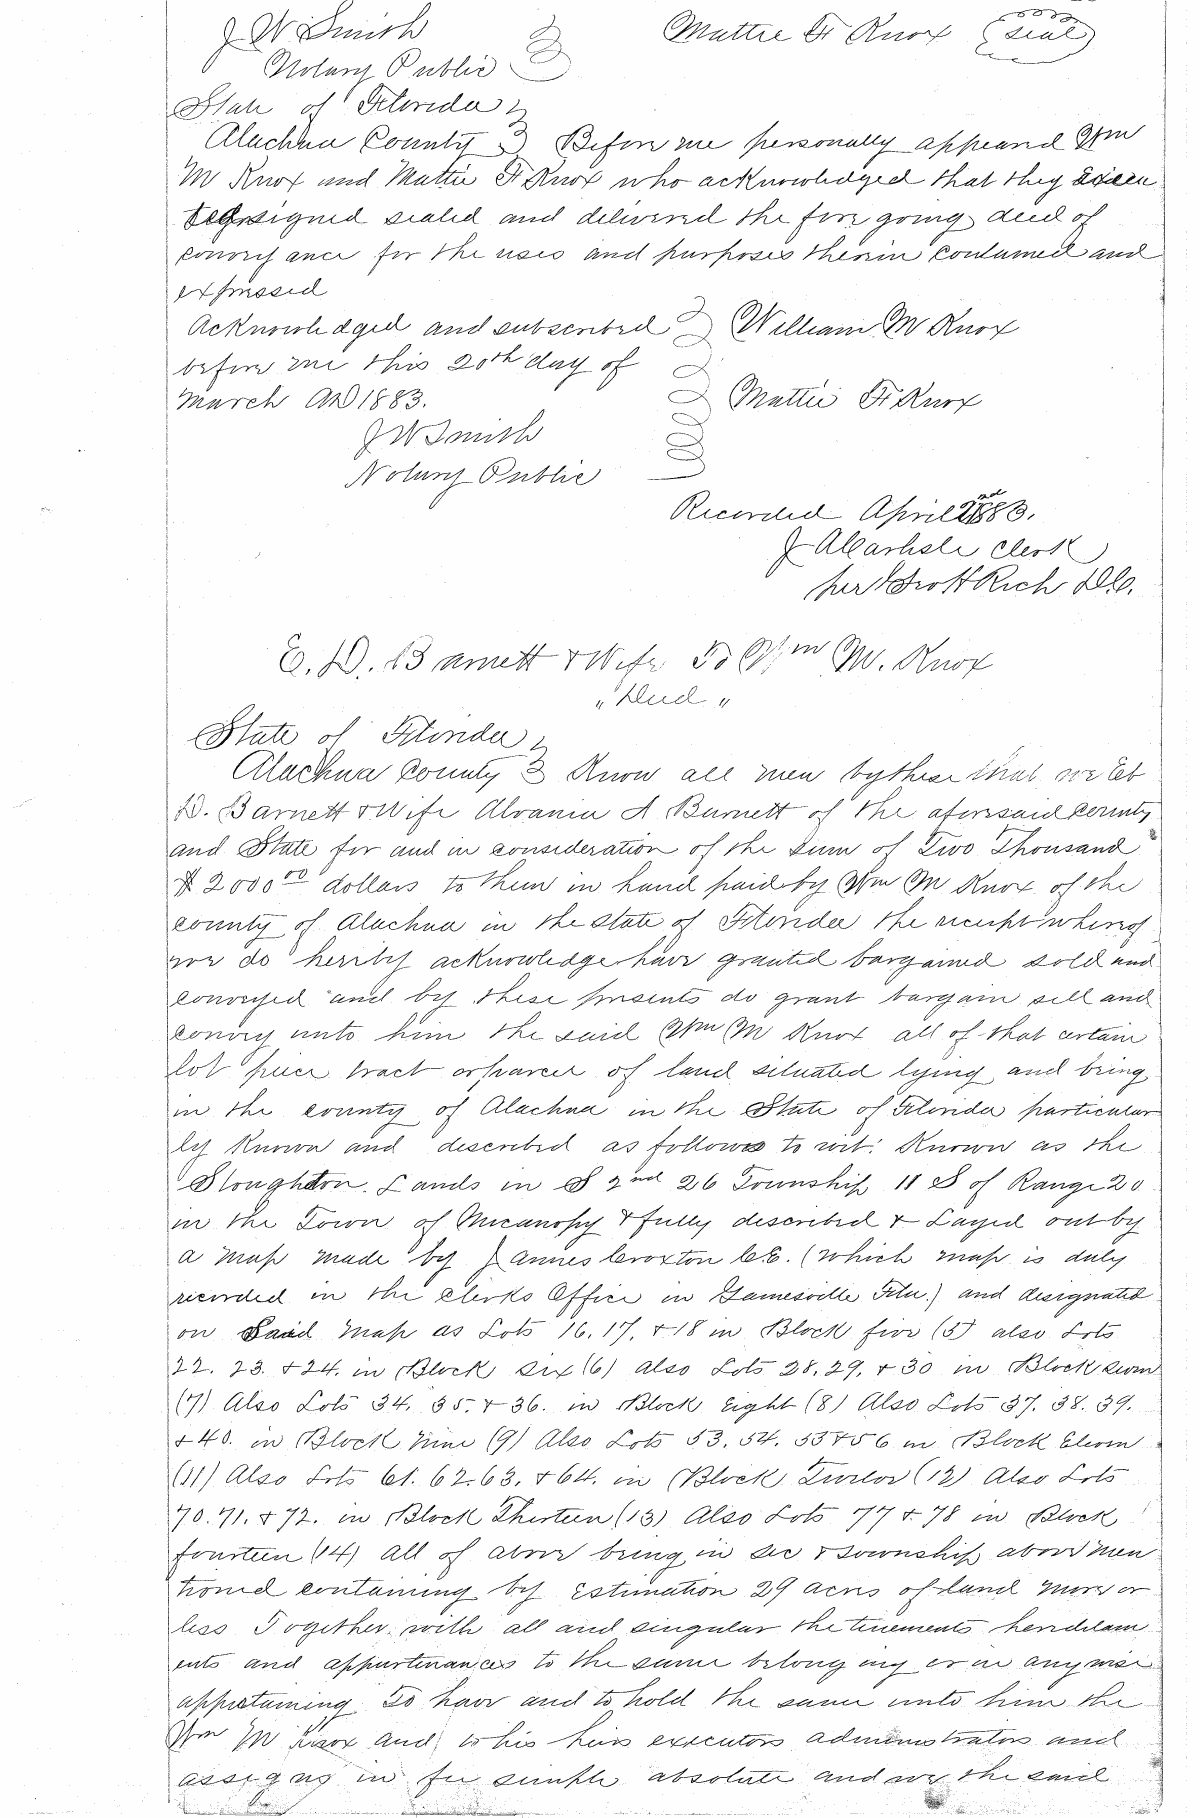 J W Smith Mattie F Knox (seal)
Notary Public
State of Florida
Alachua County Before me personally appeared Wm
M Knox and Mattie F Knox who acknowledged that they
signed sealed and delivered the fore going deed of
convey ance for the uses and purposes therein contained and
expressed
Acknowledged and subscribed William M Knox
before me this 20th day of
March AD 1883. Mattie F Knox
J W Smith
Notary Public
Recorded April 1883.
J A Carlisle Clerk
per Scott Rich D.C.
E. D. Barnett & Wife To Wm M. Knox
" Deed "
State of Florida
Alachua County Know all men by these that we E
D. Barnett & Wife Alvania A Barnett of the aforesaid County
and State for and in consideration of the sum of Two Thousand
$ 2000 00 dollars to them in hand paid by Wm M Knox of the
county of Alachua in the state of Florida the receipt whereof
we do hereby acknowledge have granted bargained sold and
conveyed and by these presents do grant bargain sell and
convey unto him the said Wm M Knox all of that certain
lot piece tract or parcel of land situated lying and being
in the county of Alachua in the State of Florida particular
ly known and described as follows to wit: Known as the
Stoughton Lands in S 2nd 26 Township 11 S of Range 20
in the Town of Micanopy & fully described & Layed out by
a map made by James Croxton C.E. (which map is duly
recorded in the Clerks Office in Gainesville Fla.) and designated
on Said Map as Lots 16. 17. & 18 in Block five (5) also Lots
22. 23. & 24. in Block six (6) also Lots 28. 29. & 30 in Block seven
(7) Also Lots 34. 35. & 36. in Block Eight (8) Also Lots 37. 38. 39.
& 40. in Block Nine (9) Also Lots 53. 54. 55 & 56 in Block Eleven
(11) Also Lots 61. 62. 63. & 64. in Block Twelve (12) Also Lots
70. 71. & 72. in Block Thirteen (13) Also Lots 77 & 78 in Block
fourteen (14) All of above being in Sec & Township above men
tioned containing by Estimation 29 acres of land more or
less Together with all and singular the tenements heriditam
ents and appurtenances to the same belong ing or in any wise
appertaining To have and to hold the same unto him the
Wm M Knox and to his heirs executors administrators and
assigns in fee simple absolute and we the said